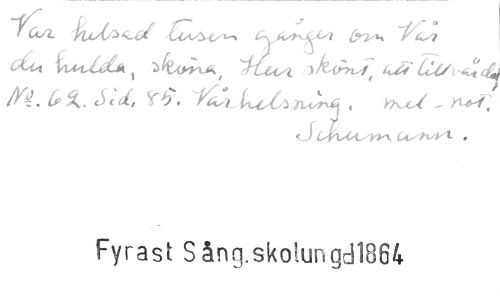 Var helsad tusen gånger om Vår
du hulda, sköna, Hur skönt, att till vår dal,
No. 62. Sid. 85. Vårhelsning. mel-not.
Schumann.
Fyrast Sång.skolungd1864